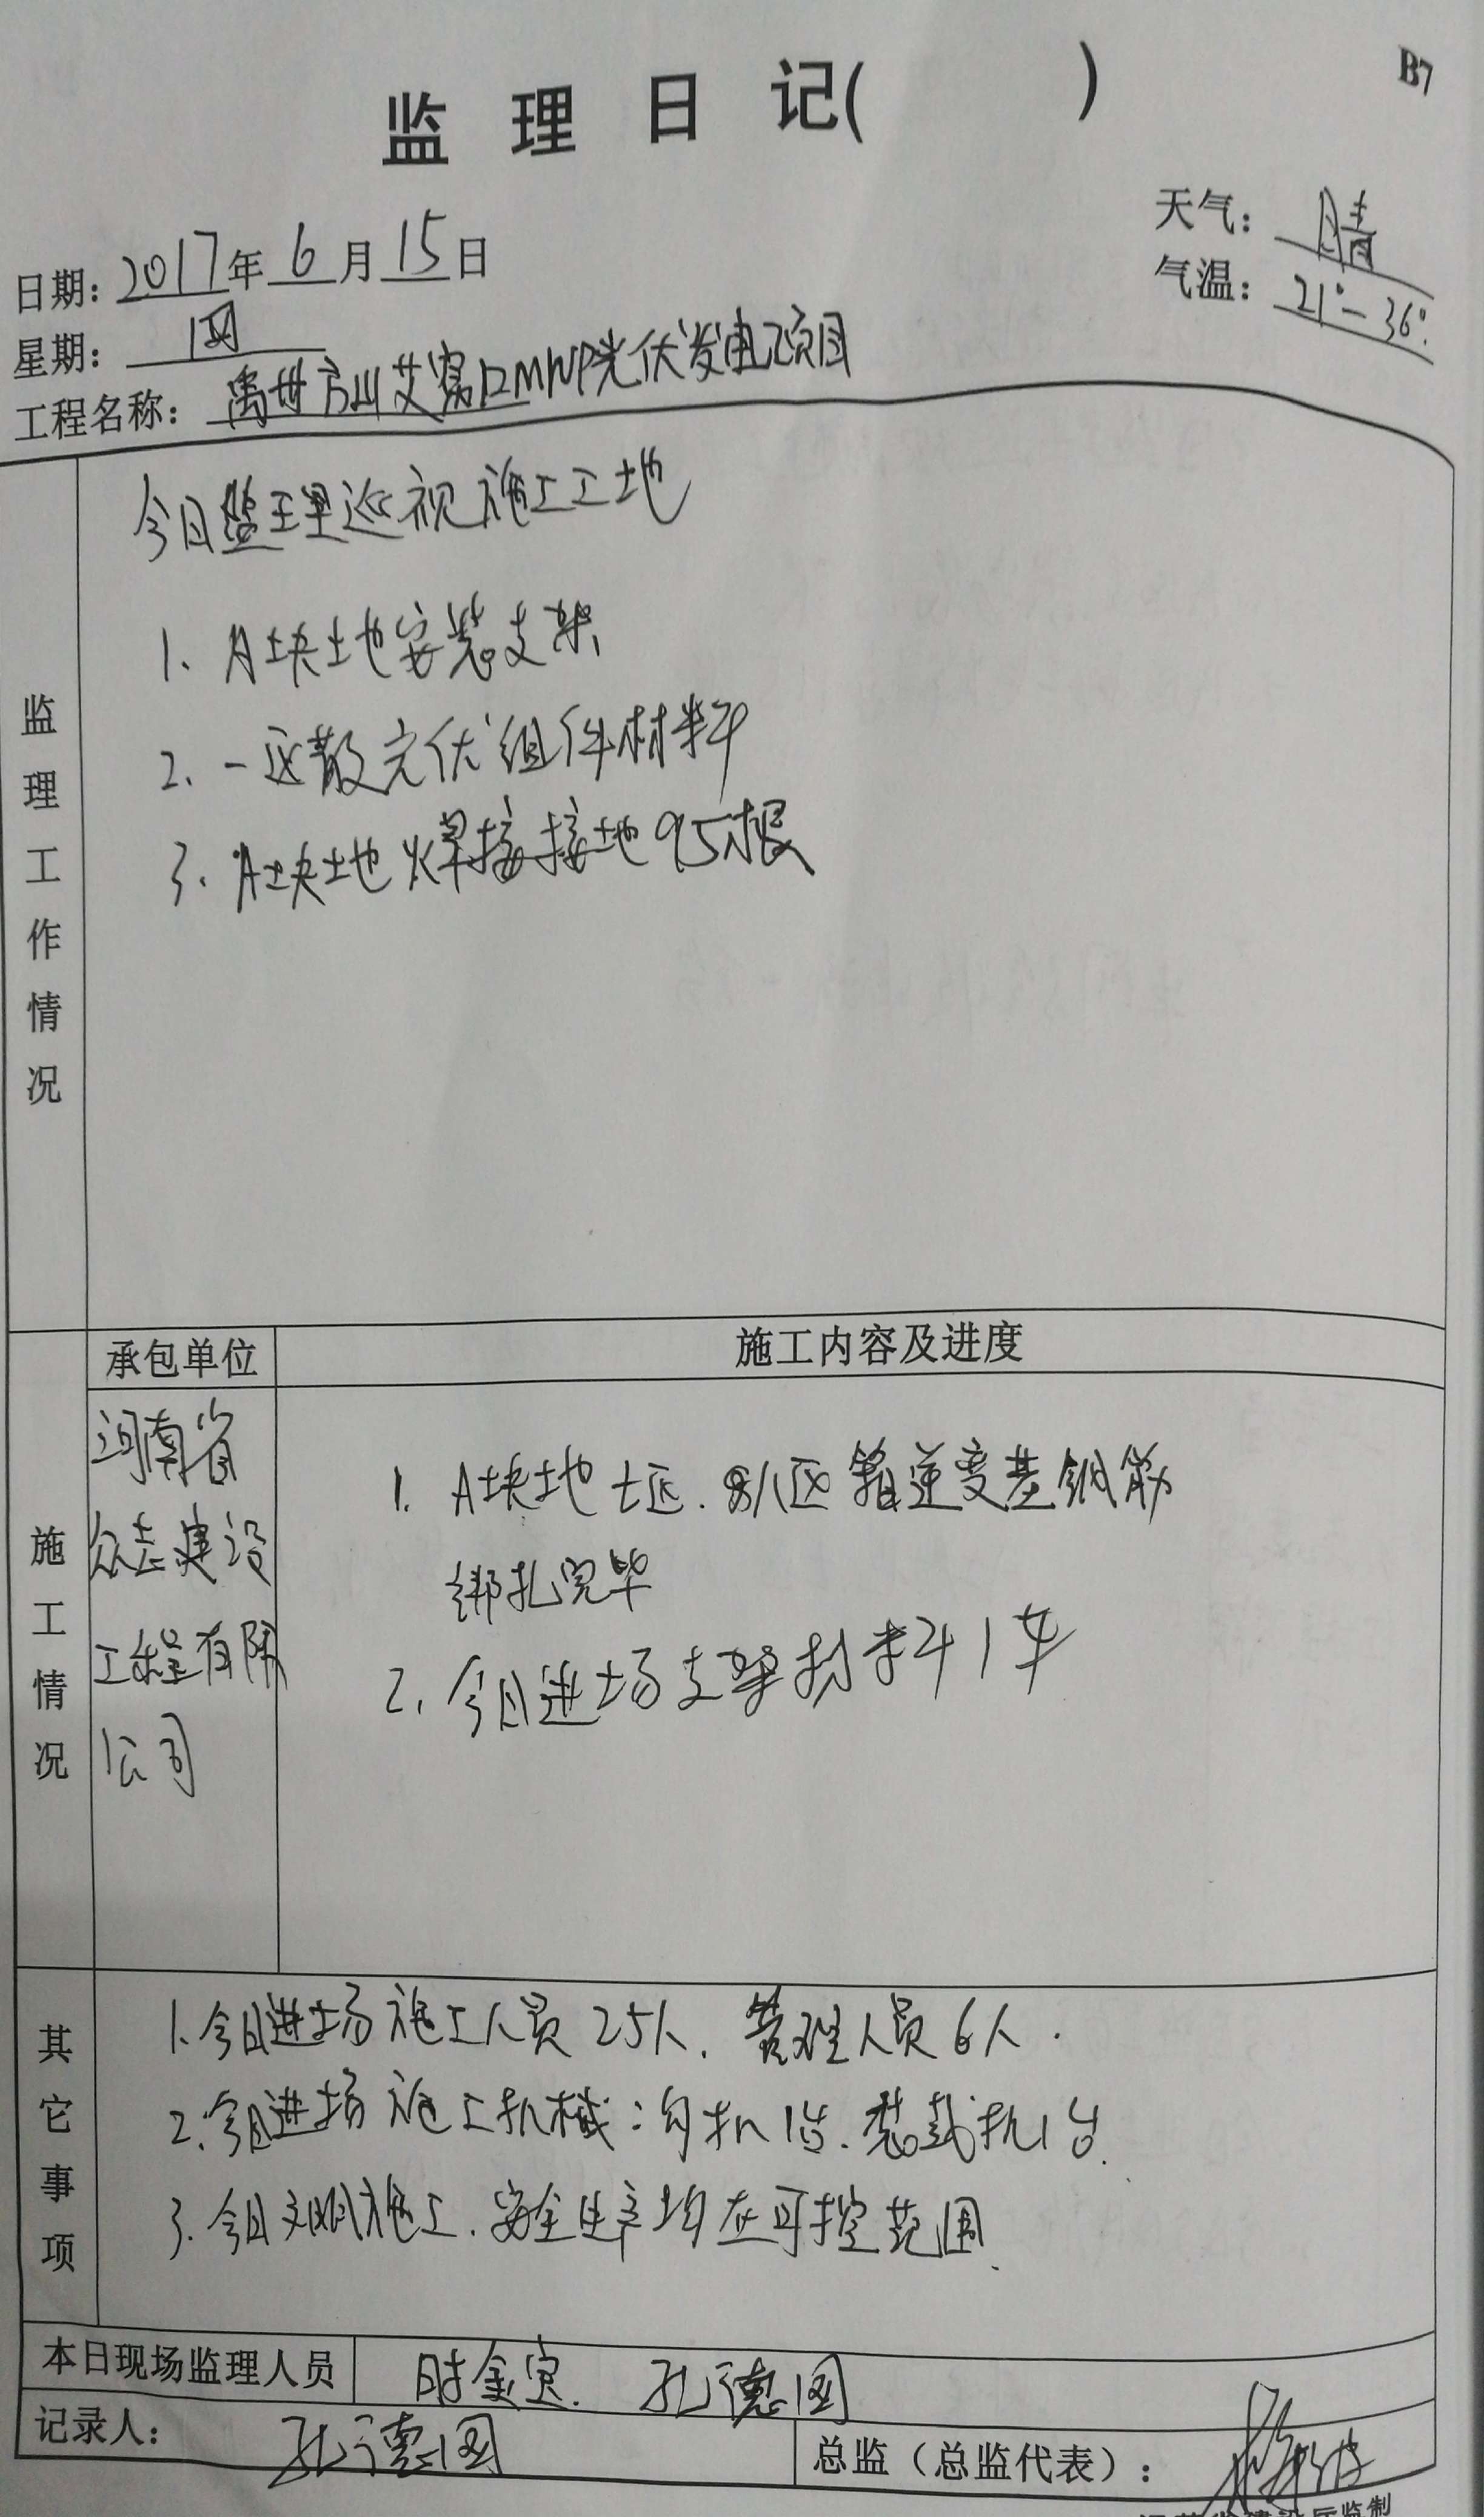 监理日记( )
B7
天气：晴
气温：21°-36°
日期：2017年6月15日
星期：四
工程名称：禹州方山艾窝口MWP光伏发电项目
监理工作情况
今日监理巡视施工工地
1、A块地安装支架
2、一区散光伏组件材料
3、A块地焊接接地95根
承包单位
施工内容及进度
施工情况
河南省
众志建设
工程有限
公司
1、A块地七区、八区箱逆变基钢筋
绑扎完毕
2、今日进场支架材料1车
其它事项
1、今日进场施工人员25人、管理人员6人.
2、今日进场施工机械：勾机1台、装载机1台.
3、今日文明施工、安全生产均在可控范围.
本日现场监理人员
时金宾. 孔德团
记录人：孔德团
总监（总监代表）：
建设厅监制